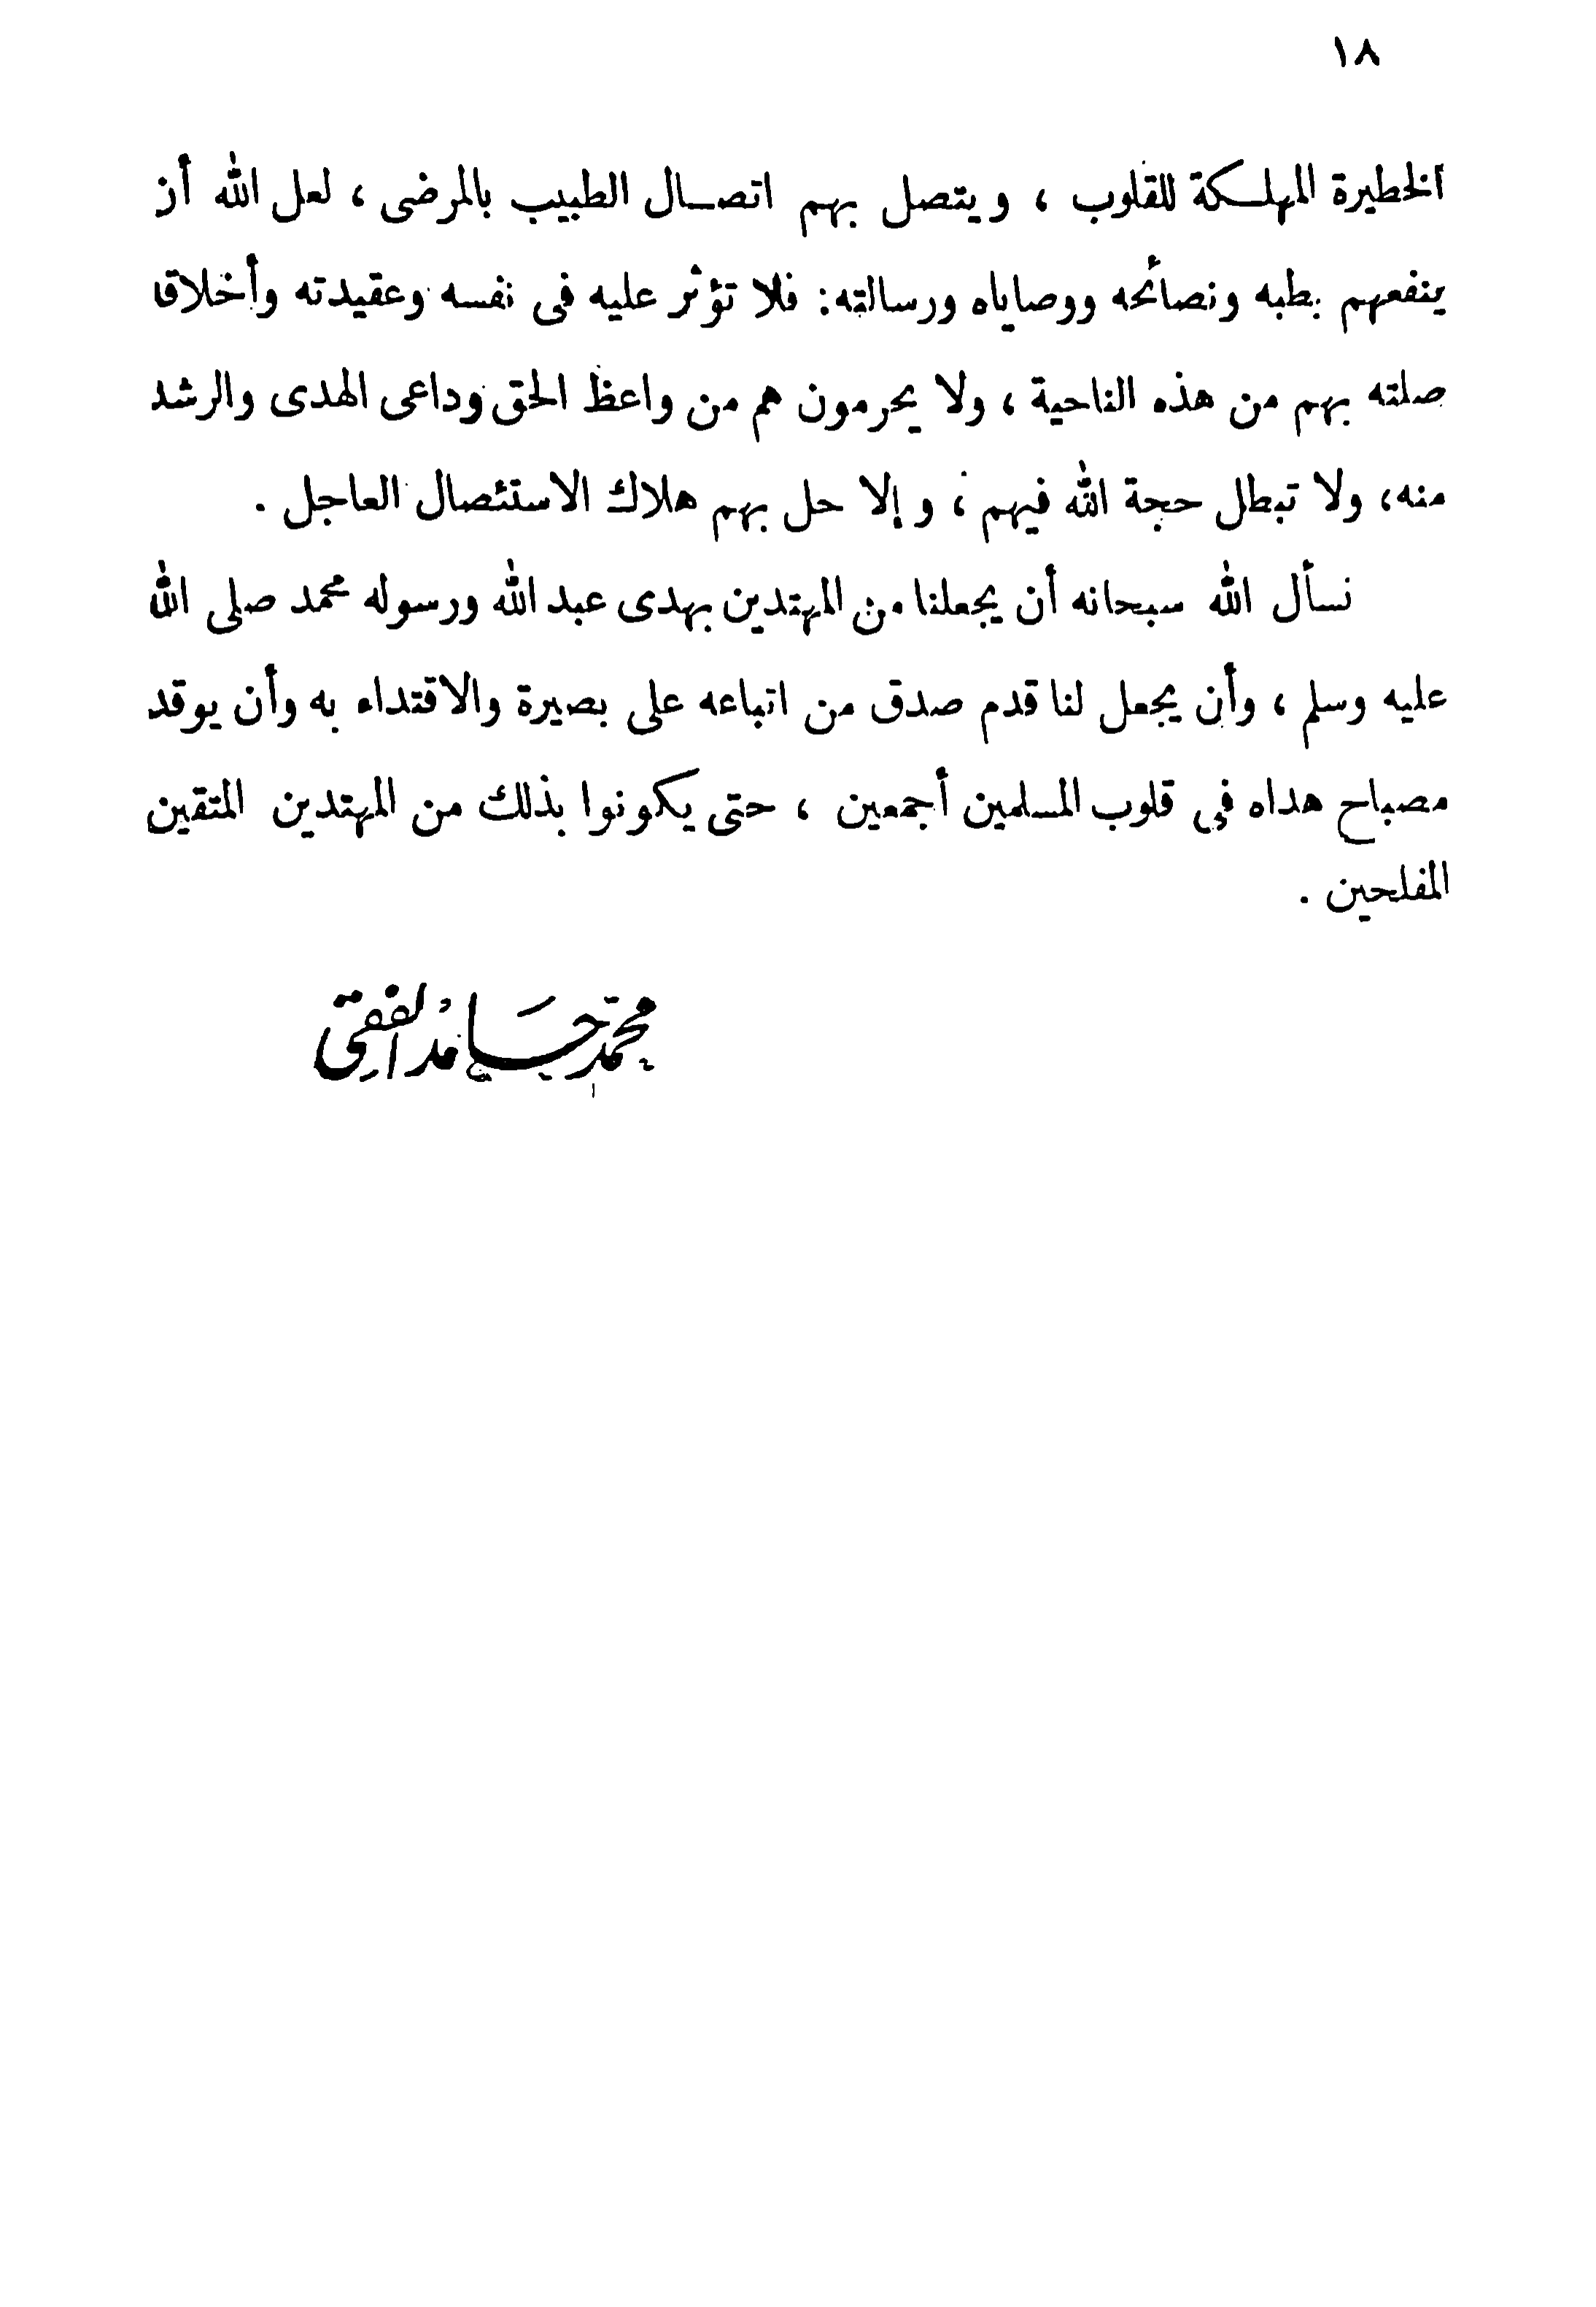 ١٨
الخطيرة المهلكة للقلوب ، ويتصل بهم اتصال الطبيب بالمرضى ، لعل الله أن
ينفعهم بطبه ونصائحه ووصاياه ورسالته: فلا تؤثر عليه فى نفسه وعقيدته وأخلاقا
صلته بهم من هذه الناحية ، ولا يحرمون هم من واعظ الحق وداعى الهدى والرشد
منه، ولا تبطل حجة الله فيهم ، وإلا حل بهم هلاك الاستئصال العاجل .
نسأل الله سبحانه أن يجعلنا من المهتدين بهدى عبد الله ورسوله محمد صلى الله
عليه وسلم ، وأن يجعل لنا قدم صدق من اتباعه على بصيرة والاقتداء به وأن يوقد
مصباح هداه في قلوب المسلمين أجمعين ، حتى يكونوا بذلك من المهتدين المتقين
المفلحين .
محمد حَامدُ الفقى